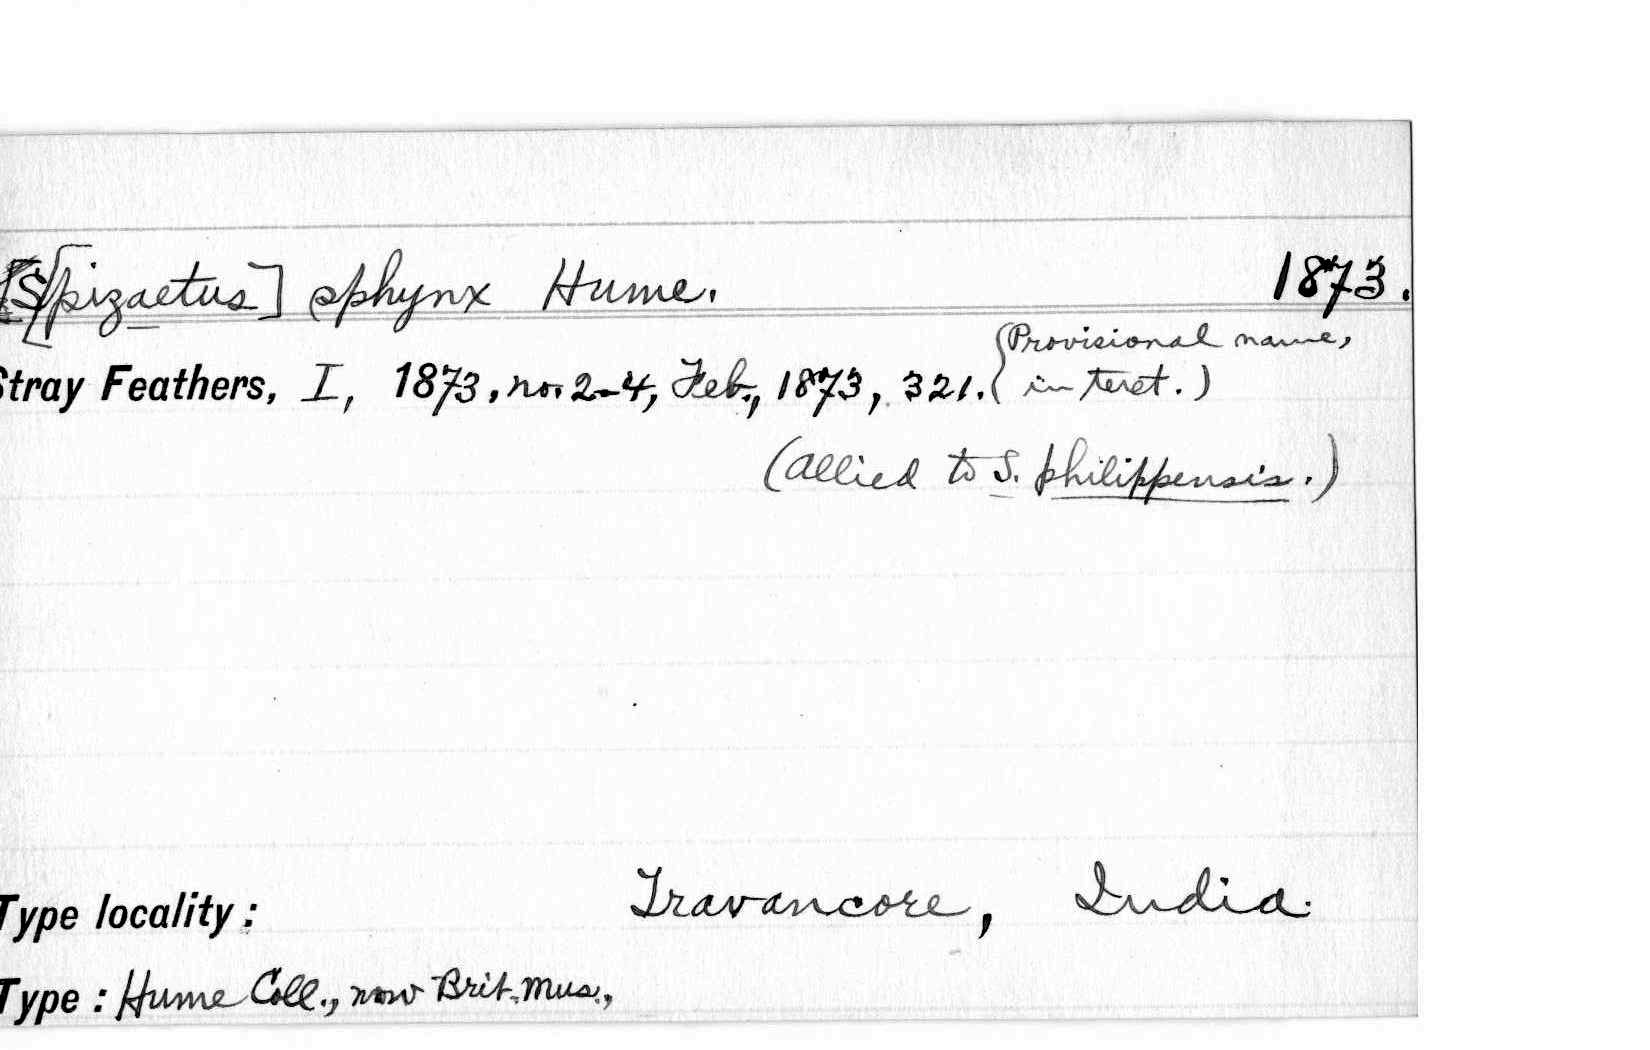 [S[pizaetus] sphynx Hume. 1873.
Stray Feathers, I, 1873, no. 2-4, Feb., 1873, 321. (Provisional name,
in text.)
(allied to S. philippensis.)
Type locality: Travancore, India.
Type: Hume Coll., now Brit. Mus.,